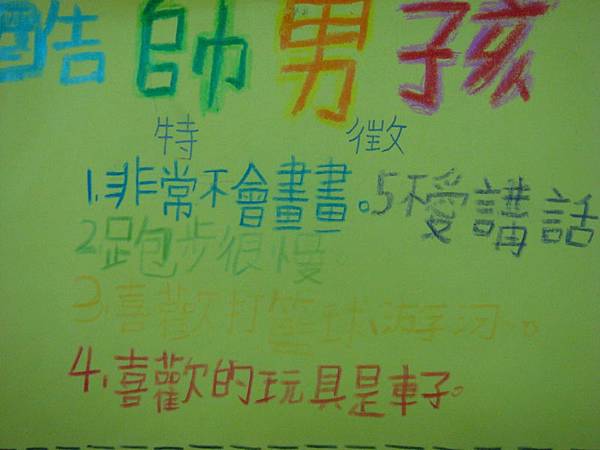 酷帥男孩
特徵
1.非常不會畫畫。
2.跑步很慢
3.喜歡打籃球、游泳。
4.喜歡的玩具是車子。
5.不愛講話